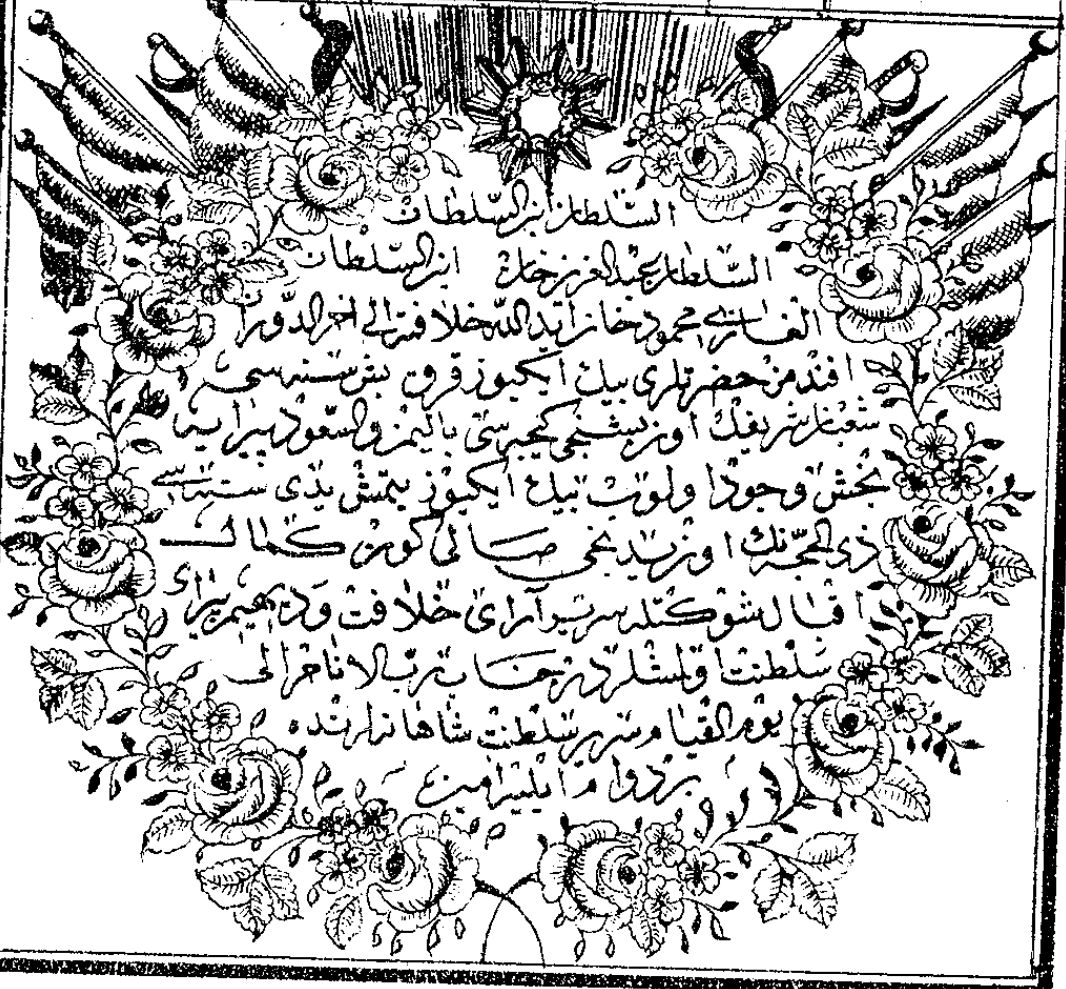 السلطان ابن السلطان
السلطان عبدالعزيز خان ابن السلطان
الغازى محمود خان ايد الله خلافته الى اخر الدوران
افندمز حضرتلرى بيك ايكيوز قرق بش سنه سى
شعبان شريفك اون بشنجى كيجه سى باليمن والسعود پيرايه
بخش وجود اولوب بيك ايكيوز يتمش يدى سنه سى
ذى الحجه نك اون يدنجى صالى كونى كمال
اقبال شوكتله سرير آراى خلافت وديهيم پيراى
سلطنت اولمشلردر جناب رب الانام الى
يوم القيام سرير سلطنت شاهانه لرنده
بردوام ايليه امين